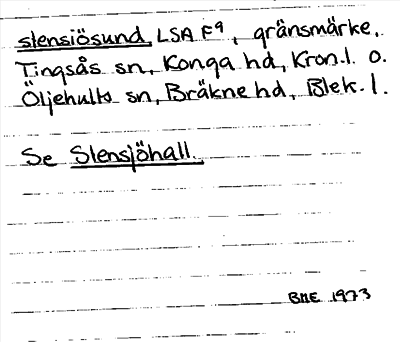 slensiösund, LSA F9, gränsmärke,
Tingsås sn, Konga hd, Kron.l. o.
Öljehults sn, Bräkne hd, Blek. l.
Se Slensjöhall.
BME 1973